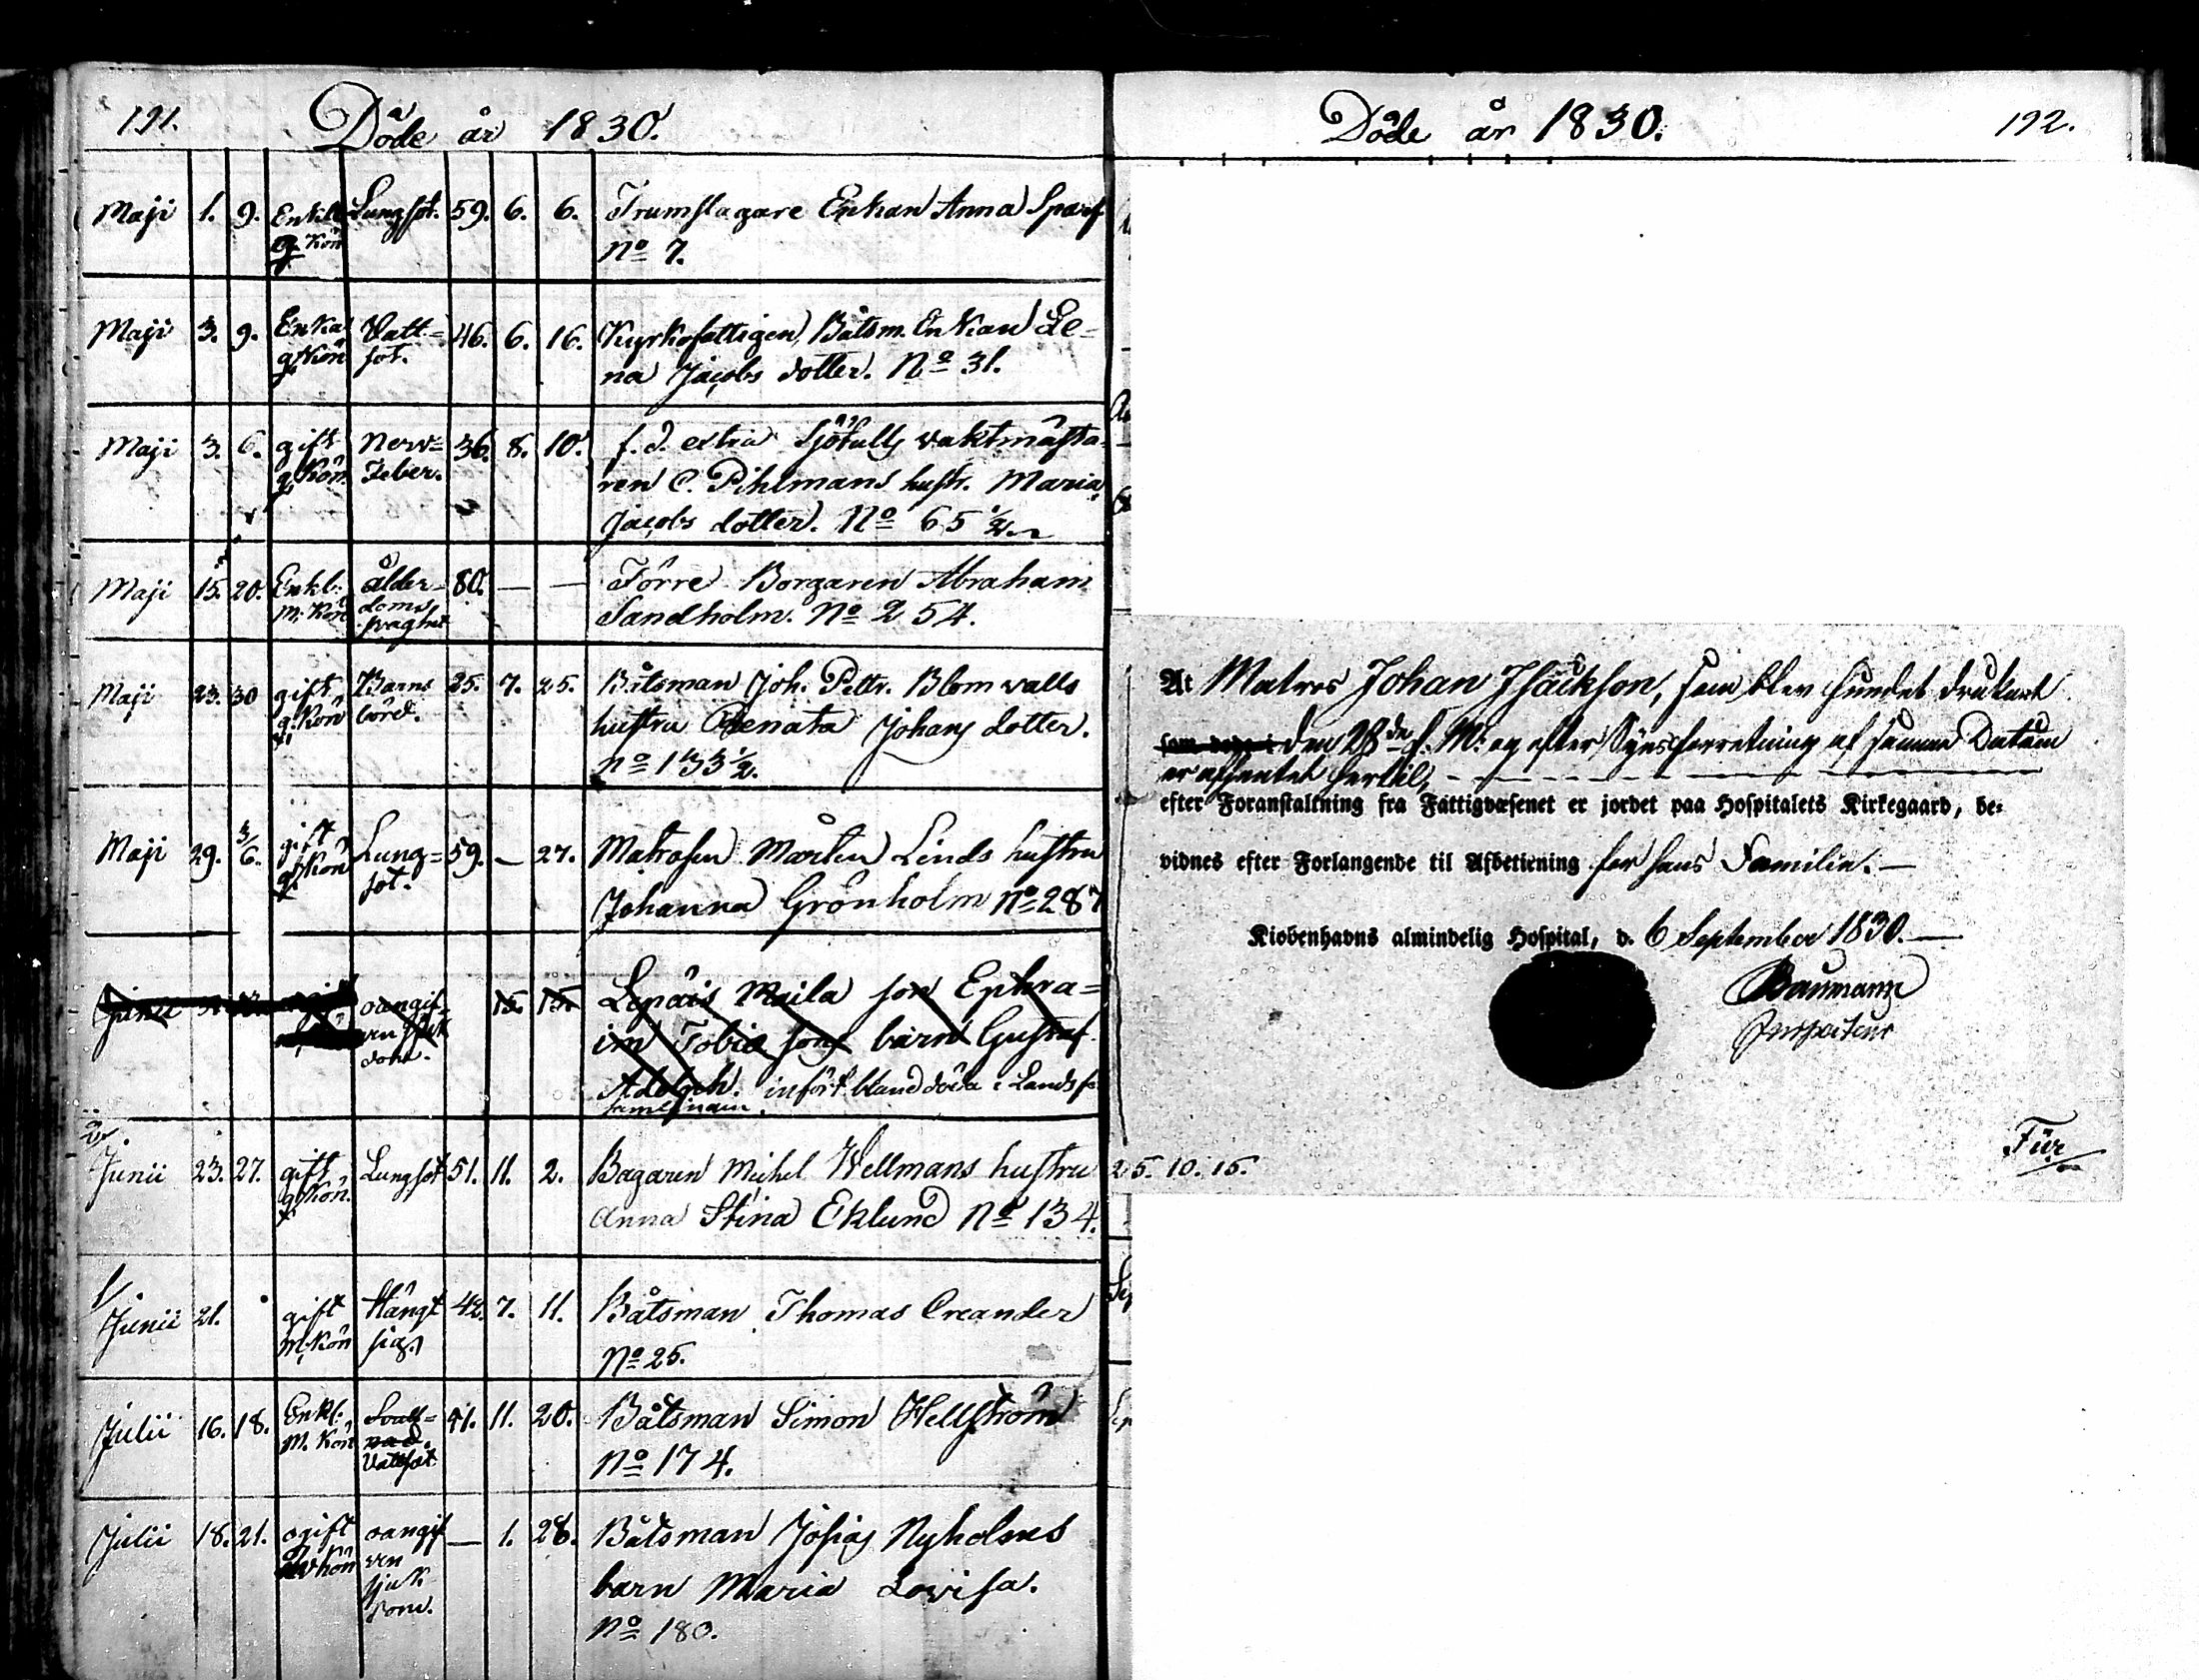 191.
Döde år 1830.
Maji 1. 9. Enkl. q. Kön Lungsot. 59. 6. 6. Trumslagare Enkan Anna Sparf
No 7.
Maji 3. 9. Enka q. Kön Vatt=sot. 46. 6. 16. Kyrkofattigen, Båtsm. Enkan Le=
na Jacobs dotter. No 31.
Maji 3. 6. gift q. Kön Nerv=Feber. 36. 8. 10. f. d. extra Sjötulls vaktmästa
ren C. Pihlmans hustr. Maria
Jacobs dotter. No 65 1/2
Maji 15. 20. Enkl: m. Kön ålder=doms svaghet 80. — — Förre Borgaren Abraham
Sandholm. No 254.
Maji 23. 30 gift q. Kön Barns börd. 25. 7. 25. Båtsman Joh. Pettr. Blomvalls
hustru Renata Johans dotter.
No 133 1/2.
Maji 29. 3/6. gift q. Kön Lung=sot. 59. — 27. Matrosen Mårten Linds hustru
Johanna Grönholm No 287
Junii oangif=ven 15. 15. Lepäis Maila son Ephra=
im Tobias sons barn Gustaf
Adolph. infört bland döda i Lands fö
samlingen.
2.
Junii 23. 27. gift q. Kön. Lungsot 51. 11. 2. Bagaren Michel Wellmans hustru
Anna Stina Eklund No 134.
1/
Junii 21. gift M. Kön Hängt sig. 42. 7. 11. Båtsman Thomas Oreander
No 25.
Julii 16. 18. Enkl. M. Kön Svull=nad. Vattsot 41. 11. 20. Båtsman Simon Hellström
No 174.
Julii 18. 21. ogift kön oangif ven sjuk dom. — 1. 28. Båtsman Josias Nyholms
barn Maria Lovisa.
No 180.
Döde år 1830.
192.
At Matros Johan Isäckson, som blev fundet druknet
som døde i den 28de f. M: og efter Synsforretning af samme Datum
er afhentet hertil, —
efter Foranstaltning fra Fattigvæsenet er jordet paa Hospitalets Kirkegaard, be=
vidnes efter Forlangende til Afbetiening for hans Familie. —
Kiøbenhavns almindelig Hospital, d. 6 September 1830. —
Baumann
Inspecteur
Für
25. 10. 15.